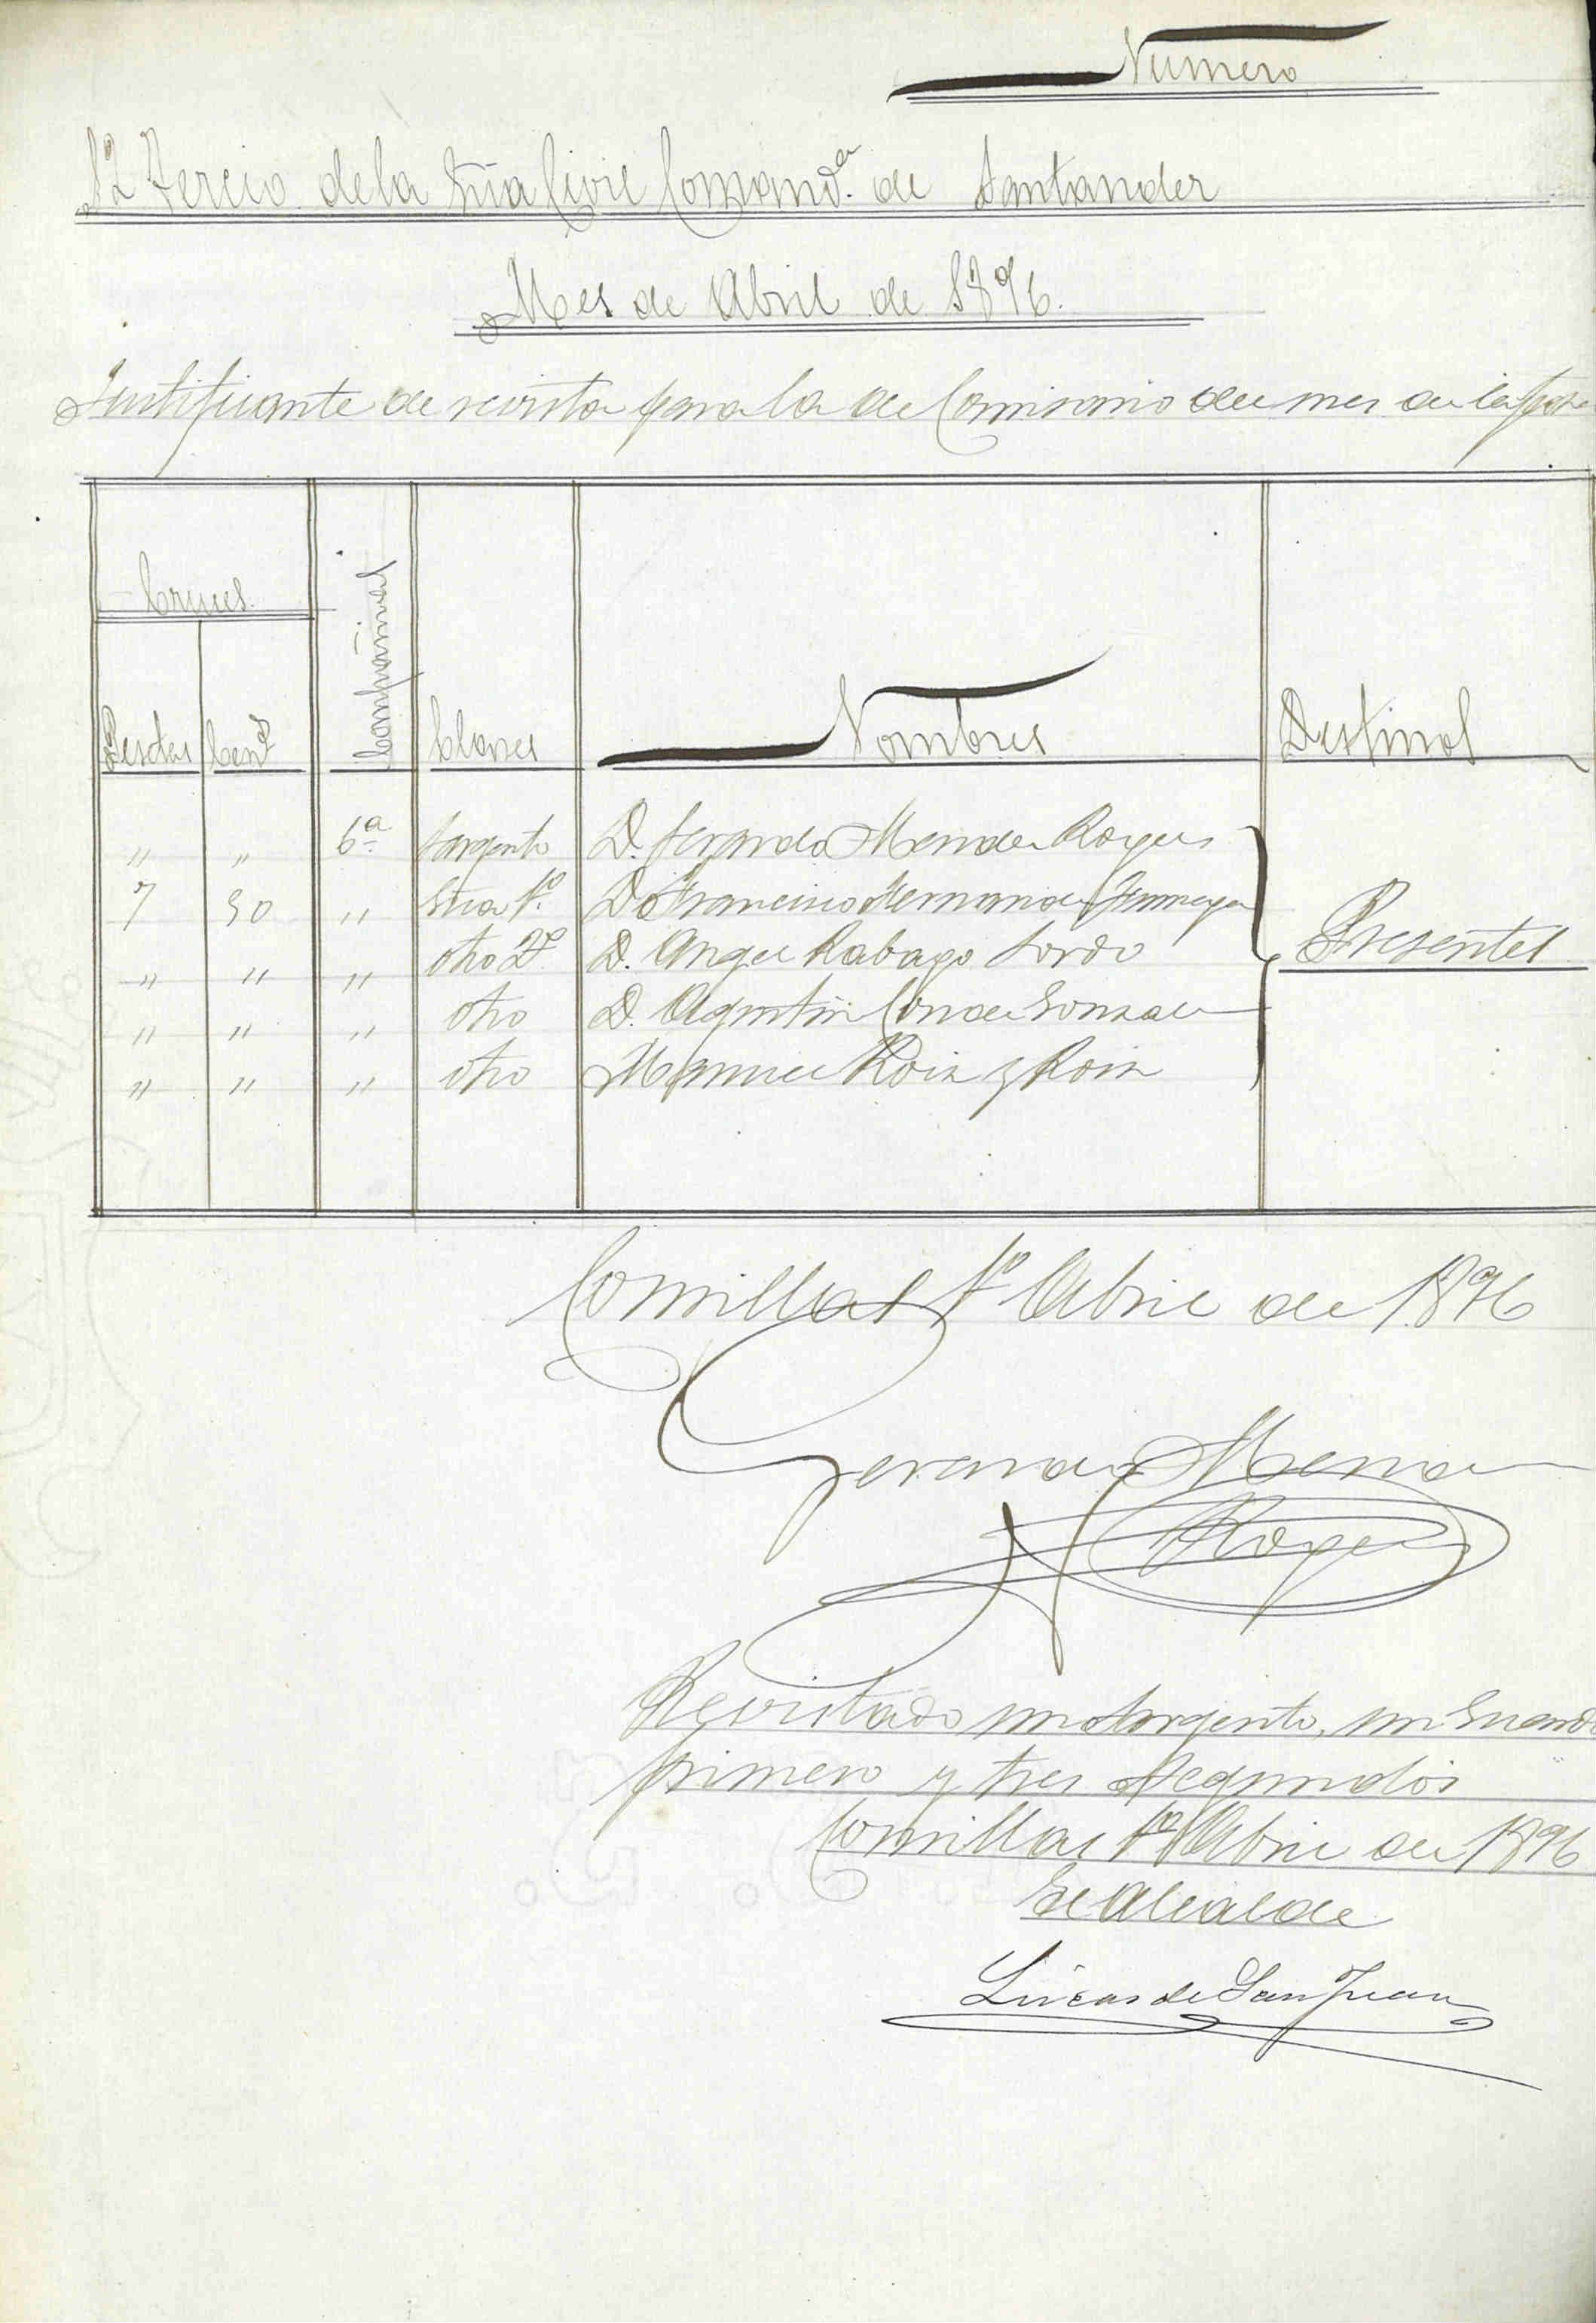 Número
12 Tercio de la Gúia Civil Comand.ª de Santander
Mes de Abril de 1896.
Justificante de revista para la de Comisario del mes de la fecha
Cruces
Pesetas Cent.s Compañias Clases Nombres Destinos
" " 6.ª Sargento D. Gerardo Mendez Royes
7 50 " Gúia 1.º D. Francisco Hernandez
" " " otro 2.º D. Angel Rabago Sordo
Presentes
" " " otro D. Agustin Conde Gonzalez
" " " otro Manuel Roiz y Roiz
Comillas 1.º Abril de 1896
Gerardo Mendez
Royes
Revistado un Sargento, un Guardia
primero y tres Segundos
Comillas 1.º Abril de 1896
El Alcalde
Lúcas de San Juan